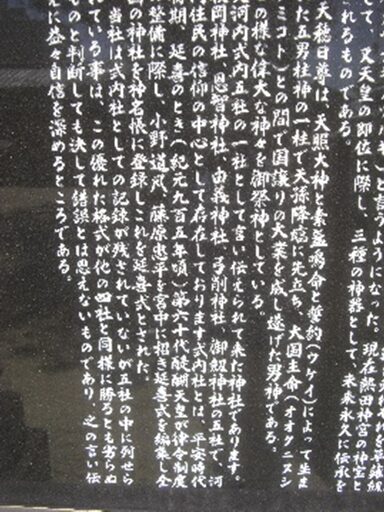 と言うようになった。現在熱田神宮の神宝と
して、又天皇の即位に際し、三種の神器として、未来永久に伝承を
れるものである。
天穂日尊は、天照大神と素盞鳴命と誓約(ウケイ)によって生ま
た五男柱神の一柱で天孫降臨に先立ち、大国主命(オオクニヌシ
ミコト)との間で国譲りの大業を成し遂げた男神である。
の様な偉大な神々を御祭神としている。
河内式内五社の一社として言い伝えられて来た神社であります。
岡神社、恩智神社、由義神社、弓削神社、御劔神社の五社で、河
住民の信仰の中心として存在しております式内社とは、平安時代
期、延喜のとき(紀元九百五年頃)第六十代醍醐天皇が律令制度
整備に際し、小野道風、藤原忠平を宮中に招き延喜式を編集し全
の神社を神名帳に登録しこれを延喜式とされた。
当社は式内社としての記録が残されていないが五社の中に列せら
れている事は、この優れた格式が他の四社と同様に勝るとも劣らぬ
ものと判断しても決して錯誤とは思えないものであり、之の言い伝
えに益々自信を深めるところである。